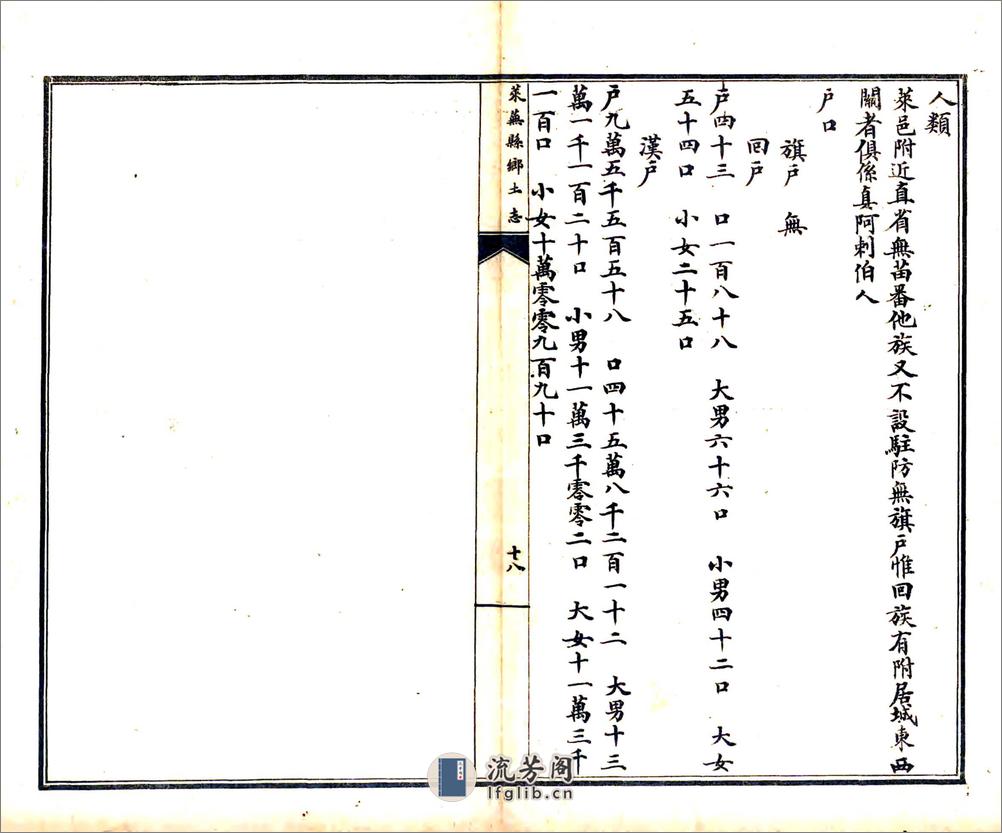 人類
萊邑附近直省無苗番他族又不設駐防無旗戶惟回族有附居城東西
關者俱係真阿剌伯人
戶口
旗戶 無
回戶
戶四十三 口一百八十八 大男六十六口 小男四十二口 大女
五十四口 小女二十五口
漢戶
戶九萬五千五百五十八 口四十五萬八千二百一十二 大男十三
萬一千一百二十口 小男十一萬三千零零二口 大女十一萬三千
一百口 小女十萬零零九百九十口
萊蕪縣鄉土志
十八
流芳阁
lfglib.cn